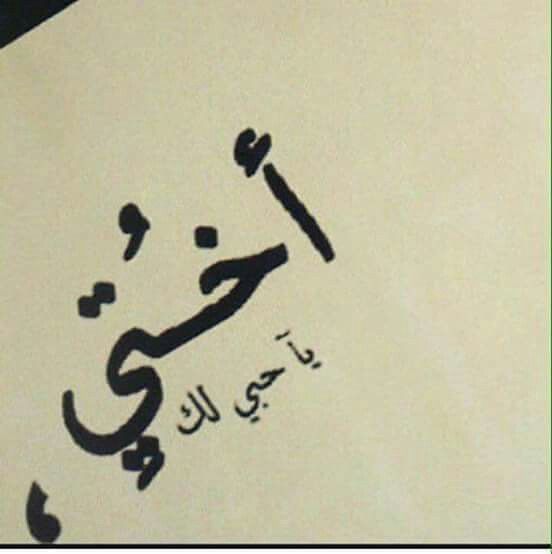 أخُتيٍ
يآ حبي لك
،